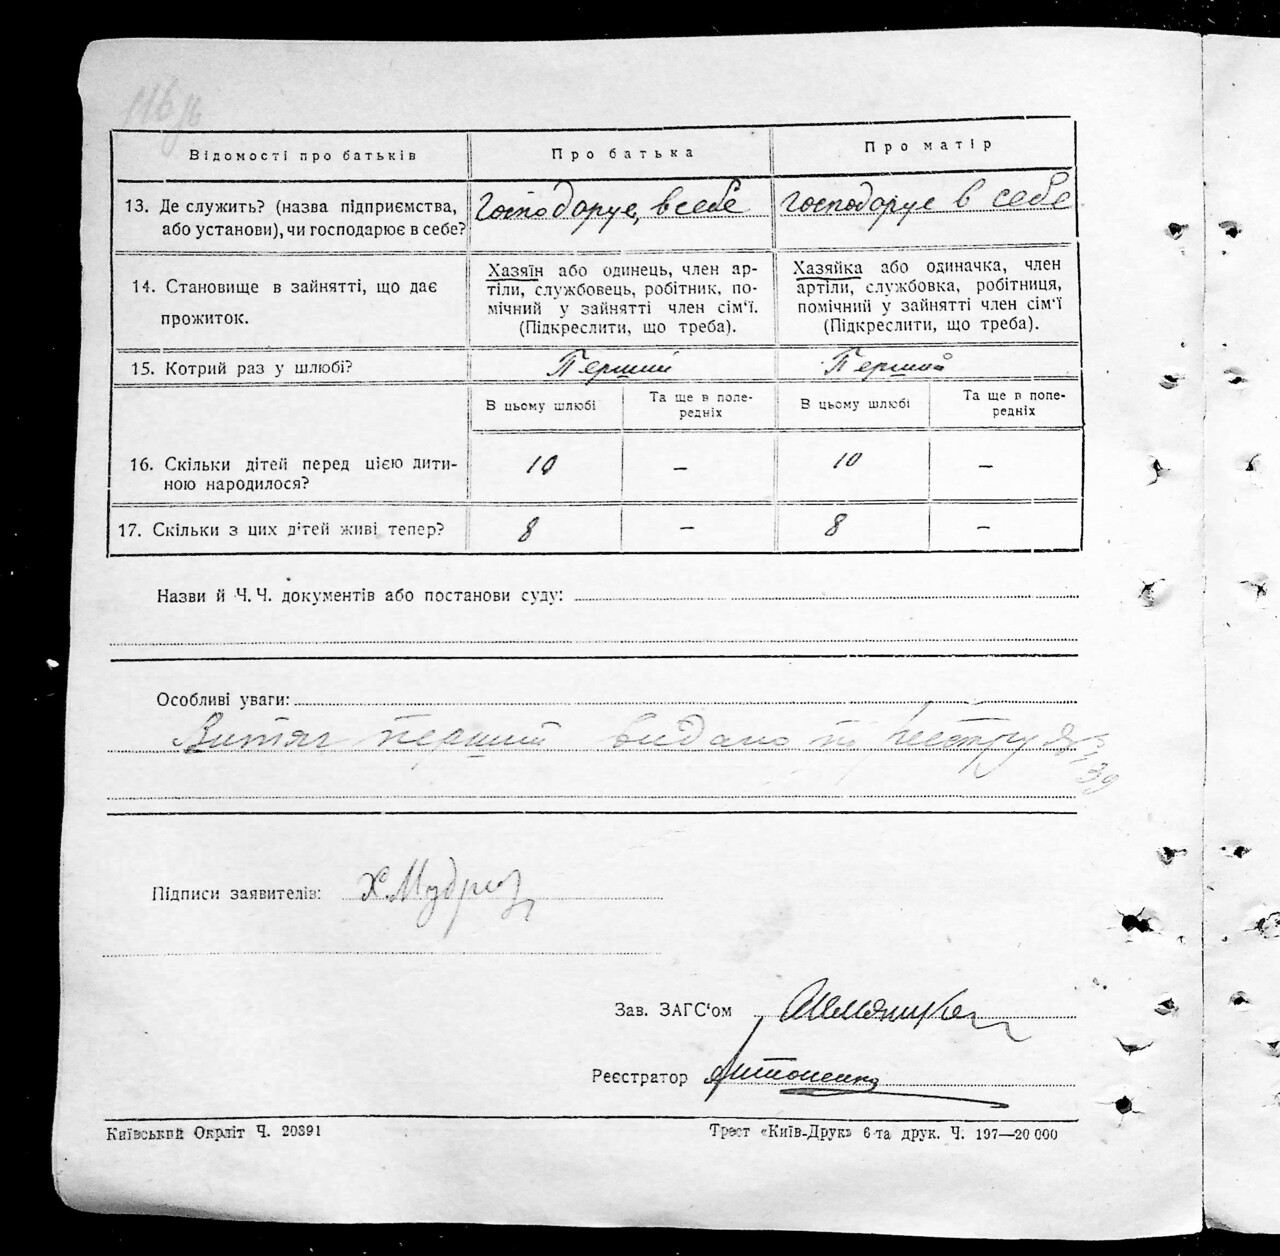 116 зв
Відомості про батьків
Про батька
Про матір
13. Де служить? (назва підприємства, або установи), чи господарює в себе?
господарує, в себе
господарує в себе
14. Становище в зайнятті, що дає прожиток.
Хазяїн або одинець, член ар-
тіли, службовець, робітник, по-
мічний у зайнятті член сім'ї.
(Підкреслити, що треба).
Хазяйка або одиначка, член
артіли, службовка, робітниця,
помічний у зайнятті член сім'ї
(Підкреслити, що треба).
15. Котрий раз у шлюбі?
Перший
Перший
В цьому шлюбі
Та ще в попе-
редніх
В цьому шлюбі
Та ще в попе-
редніх
16. Скільки дітей перед цією дити-
ною народилося?
10
–
10
–
17. Скільки з цих дітей живі тепер?
8
–
8
–
Назви й Ч. Ч. документів або постанови суду:
Особливі уваги:
Витяг перший видано по реєстру
39
Підписи заявителів: Х. Мудри
Зав. ЗАГС'ом
Реєстратор Антоненко
Київський Окрліт Ч. 20391
Трест «Київ-Друк» 6-та друк. Ч. 197—20 000